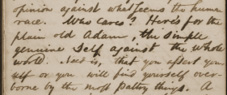 opinion against what seems the human
race. Who cares? Here's for the
plain old Adam, the simple
genuine self against the whole
world. Next is, that you assert your
self or you will find yourself over-
borne by the most paltry things. A